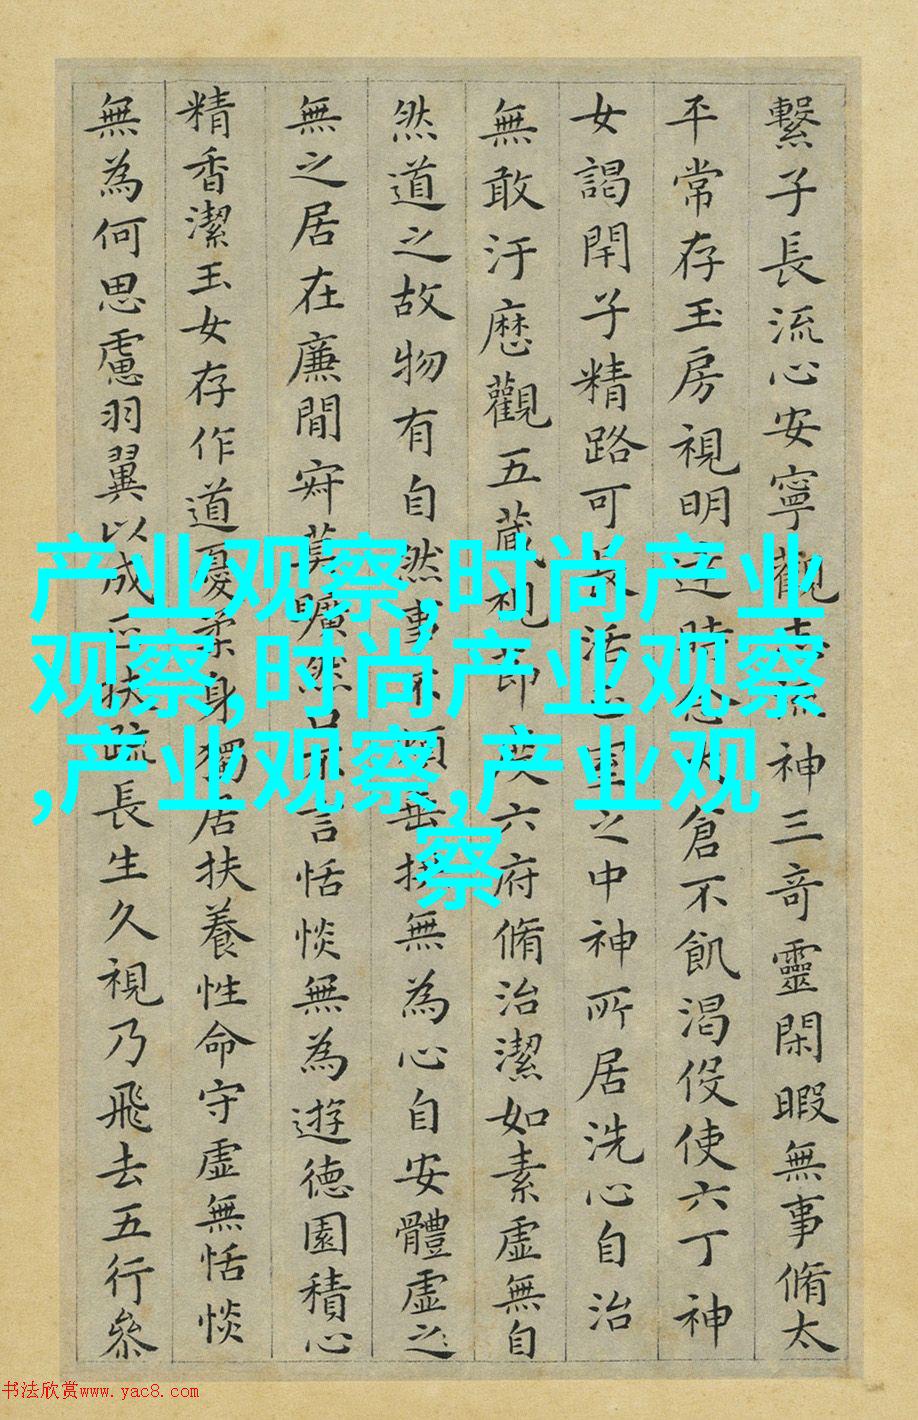 繫子長流心安寧觀志流神三竒靈閑暇無事脩太
平常存玉房視明達時念大倉不飢渴伇使六丁神
女謁開子精路可長活正室之中神所居洗心自治
無敢汙歷觀五藏視節度六府脩治潔如素虛無自
然道之故物有自然事不煩垂拱無為心自安體虛之
無之居在廉間寂莫曠然口不言恬惔無為遊德園積心
精香潔玉女存作道憂柔身獨居扶養性命守虛無恬惔
無為何思慮羽翼以成正扶疏長生久視乃飛去五行參
产业观察,时尚产业
观察,时尚产业观察
,产业观察,产业观
察
书法欣赏www.yac8.com